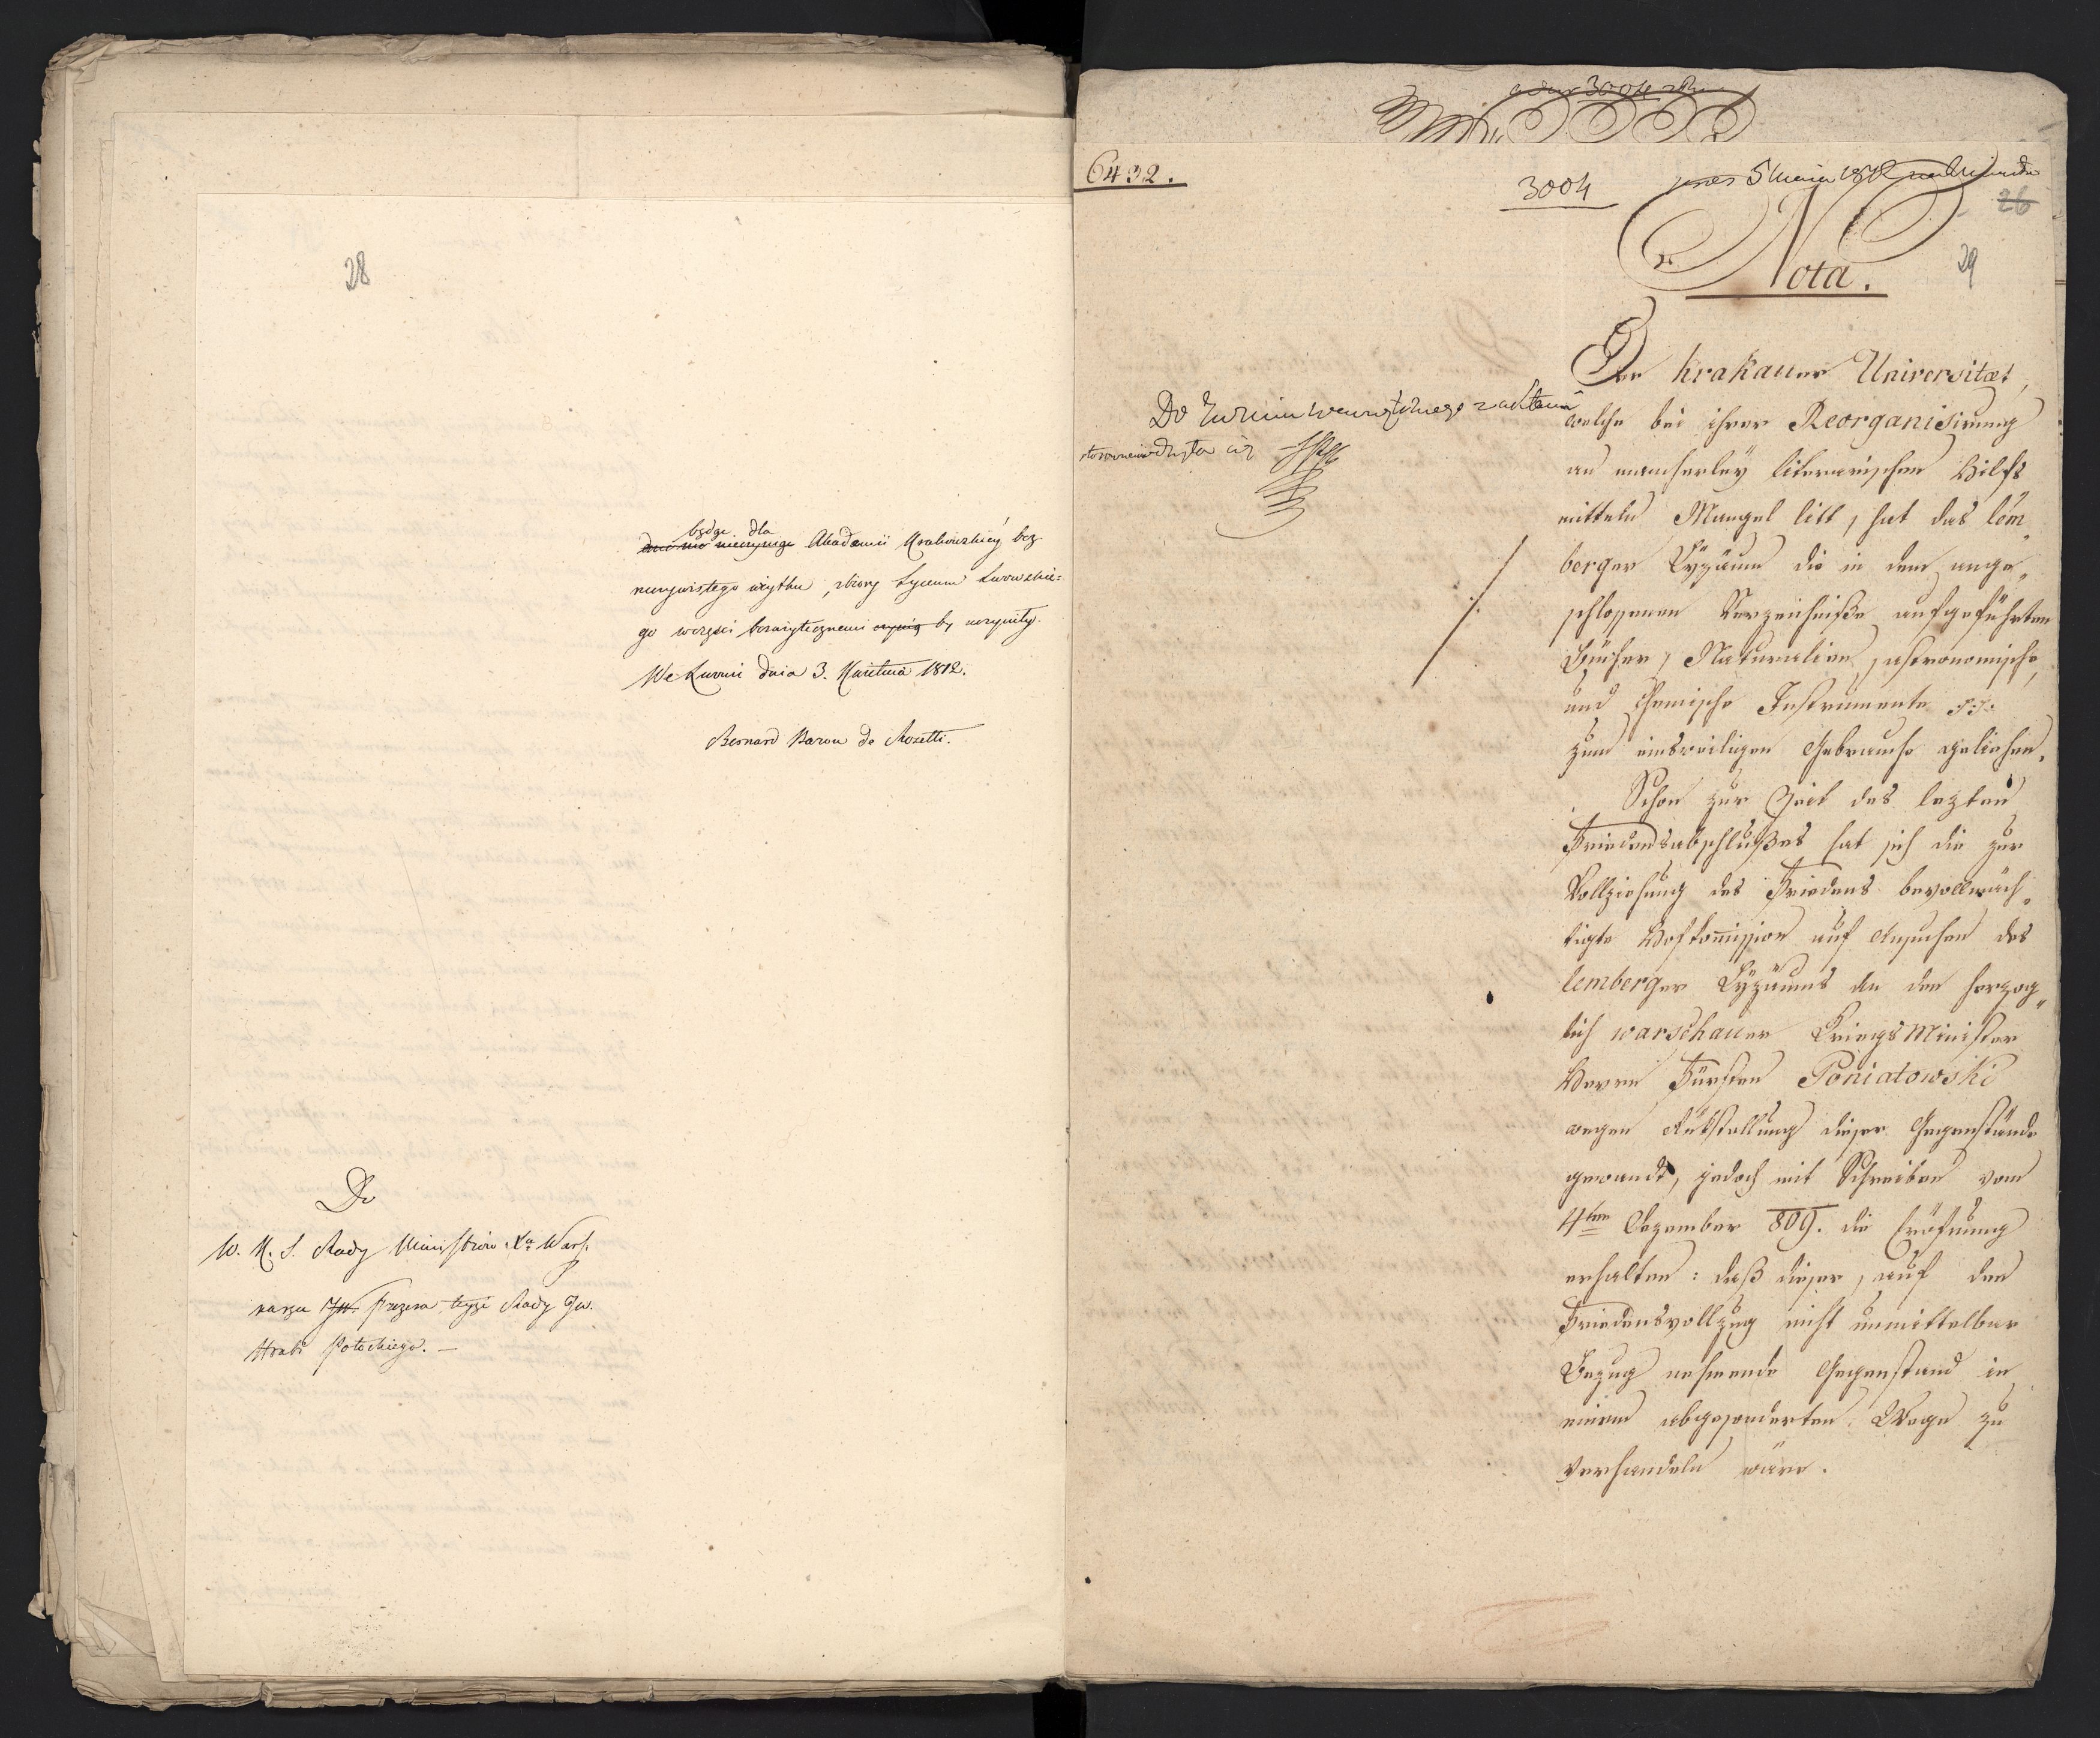 28
będąc dla
Akademii Krakowskiey bez
rzeczywistego użytku, zbiory Lyceum Lwowskie=
go wczęści bezużytecznemi czynią by uczyniły.
We Lwowie dnia 3. Kwietnia 1812.
Bernard Baron de Rozetti.
Do
W. K. S. Rady Ministrów Xa Wars.
na ręce JW. Prezesa teyże Rady Jw.
Hrabi Potockiego. —
3004
6432.
3004
5 Maia 1812
26
Nota.
29
Der Krakauer Universitæt,
welche bei ihrer Reorganisirung
an mancherley literarischen Hilfs
mitteln Mangel litt, hat das lem„
berger Lyzäum die in dem ange„
schlossenen Verzeichniße aufgeführten
Bücher, Naturalien, astronomische,
und chemische Instrumente
zum einsweiligen Gebrauche geliehen.
Schon zur Zeit des lezten
Friedensabschlußes hat sich die zur
Vollziehung des Friedens bevollmäch„
tigte Hofkom̄ission auf Ansuchen des
lemberger Lyzäums an den herzog„
lich warschauer KriegsMinister
Herrn Fürsten Poniatowski
wegen Rükstellung dieser Gegenstände
gewandt, jedoch mit Schreiben vom
4ten Dezember 809. die Eröfnung
erhalten: daß dieser, auf den
Friedensvollzug nicht unmittelbar
Bezug nehmende Gegenstand in
einem abgesonderten Wege zu
verhandeln wäre.
Do